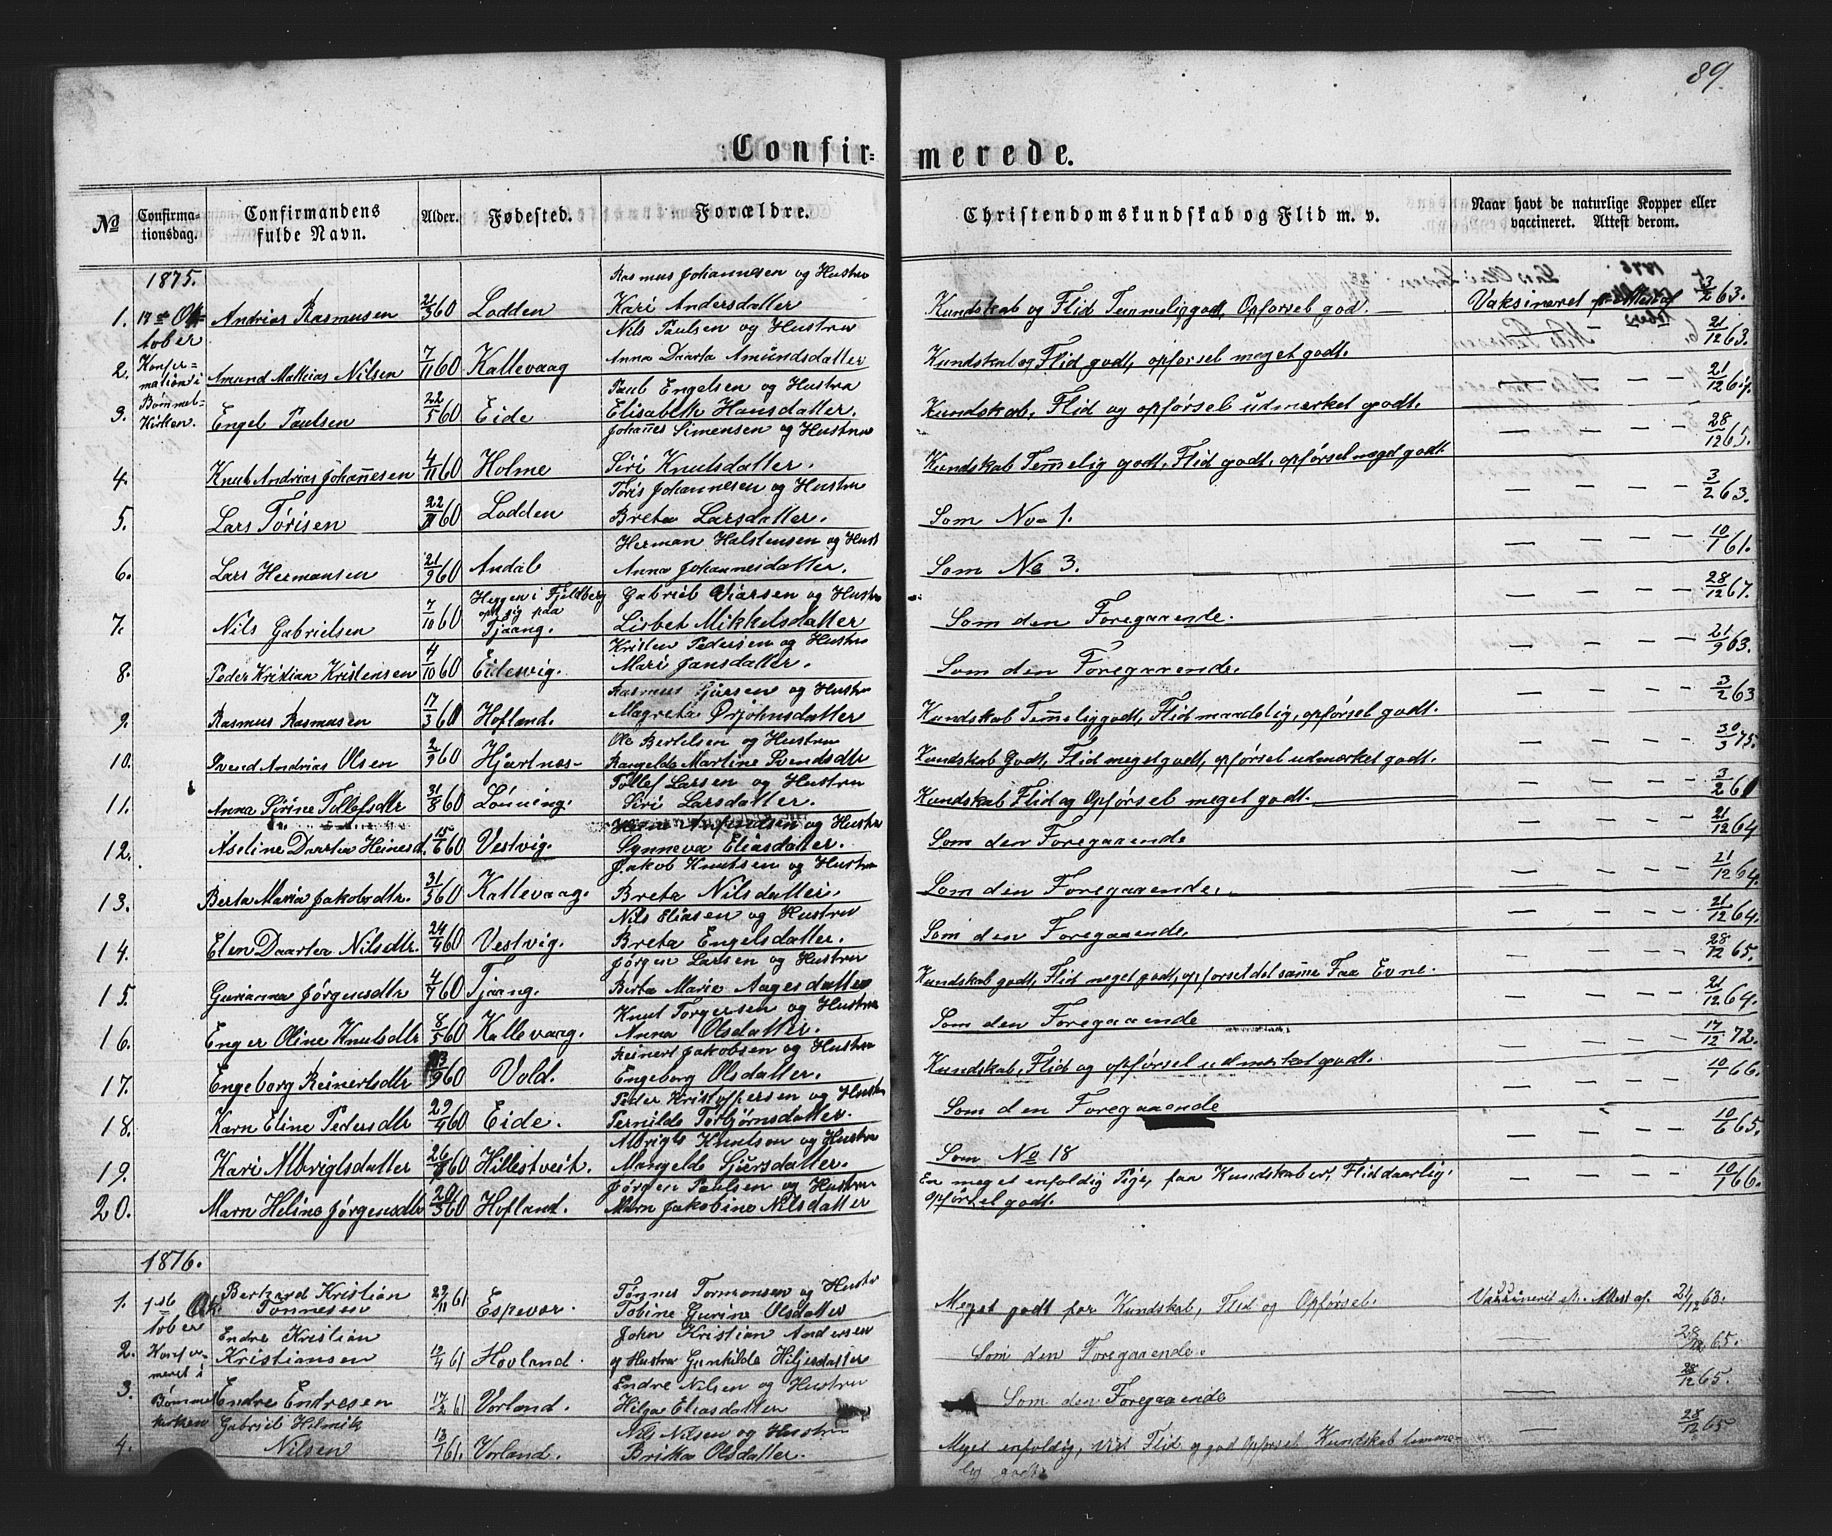 89.
Confir= merede.
No Confirma-tionsdag. Confirmandens fulde Navn. Alder. Fødested. Forældre. Christendomskundskab og Flid m. v. Naar havt de naturlige Kopper eller vaccineret. Attest derom.
1875. Rasmus Johannesen og Hustru
1. 17de Ok= Andrias Rasmusen 60 Lodden Kari Andersdatter Kundskab og Flid Temmelig godt, Opførsel god. Vaksineret 3/2 63.
tober Nils Paulsen og Hustru
2. Konfir= Amund Mathias Nilsen 60 Kallevaag Anna Daarta Amundsdatter Kundskab og Flid godt, opførsel meget godt. — — — 21/12 63.
mation i Paul Engelsen og Hustru
3. Bømmel- Engel Paulsen 22/5 60 Eide Elisabeth Hansdatter. Kundskab, Flid og opførsel udmærket godt. — — — 21/12 64.
Kirken. Johannes Simensen og Hustru
4. Knut Andrias Johannesen 4/11 60 Holme Siri Knutsdatter. Kundskab Temmelig godt, Flid godt, opførsel meget godt. — — — 28/12 65.
Tøris Johannesen og Hustru
5. Lars Tørisen 60 Lodden Breta Larsdatter. Som No 1. — — — 3/2 63.
Herman Halstensen og Hust
6. Lars Hermansen 21/9 60 Andal Anna Johannesdatter. Som No 3. — — — 10/1 61.
Heggen i Fjeldberg Gabriel Viarsen og Hustru
7. Nils Gabrielsen 7/10 60 opt. sig paa Tjaang. Lisbet Mikkelsdatter Som den Foregaaende. — — — 28/12 67.
Kristen Pedersen og Hustru
8. Peder Kristian Kristensen 4/10 60 Eidesvig. Mari Jansdatter. Som den Foregaaende. — — — 21/9 63.
Rasmus og Hustru
9. Rasmus Rasmusen 17/3 60 Hofland. Magreta Ørjohnsdatter Kundskab Temmelig godt, Flid maadelig, opførsel godt. — — — 3/2 63
Ole Bertelsen og Hustru
10. Svend Andrias Olsen 2/9 60 Hjartnes- Rangelde Martine Svendsdtr Kundskab Godt, Flid meget godt, opførsel udmærket godt. — — — 30/3 75.
Tollef Larsen og Hustru
11. Anna Sirine Tollefsdtr 31/8 60 Lønning. Siri Larsdatter. Kundskab Flid og Opførsel meget godt. — — — 3/2 61
og Hustru
12. Aseline Daarta Heinesd. 15/6 60 Vestvig. Synneva Eliasdatter. Som den Foregaaende — — — 21/12 64
Jakob Knutsen og Hustru
13. Berta Maria Jakobsdtr. 31/5 60 Kallevaag. Breta Nilsdatter. Som den Foregaaende. — — — 21/12 64.
Nils Eliasen og Hustru
14. Elen Daartea Nilsdtr. 24/4 60 Vestvig. Breta Engelsdatter. Som den Foregaaende. — — — 21/12 64.
Jørgen Larsen og Hustru
15. Gurianna Jørgensdtr 4/4 60 Tjaang. Berta Marie Aagesdatter Kundskab godt, Flid meget godt, opførsel det samme Faa Evne. — — — 28/12 65.
Knut Torgersen og Hustru
16. Enger Oline Knutsdtr 8/5 60 Kallevaag. Anna Olsdatter. Som den Foregaaende — — — 21/12 64.
Reinert Jakobsen og Hustru
17. Engeborg Reinertsdtr 60 Vold. Engeborg Olsdatter. Kundskab, Flid og opførsel udmærket godt. — — — 17/12 72.
Peder Kristoffersen og Hustru
18. Karn Eline Pedersdtr 29/4 60 Eide. Pernilde Torbjørnsdatter. Som den Foregaaende — — — 10/1 66.
Albrigts Knutsen og Hustru
19. Kari Albrigtsdatter 60 Hillestveit. Mangelde Sjursdatter. Som No 18 — — — 10/6 65.
Jørgen Paulsen og Hustru En meget enfoldig Pige, faa Kundskaber, Flid daarlig.
20. Marn Heline Jørgensdtr 20/3 60 Hofland. Marn Jakobine Nilsdatter Opførsel godt. — — — 10/1 66.
1876.
Bertzard Kristian Tønnes Tormonsen og Hustr
1. 1ste Ok Tønnesen 29/11 61 Espevær. Tobine Gurine Olsdatter Meget godt for Kundskab, Flid og Opførsel. Vaksineret eft. Attest af. 21/12 63.
tober Endre Kristian John Kristian Andersen
2. Konfir- Kristiansen 61 Hovland. og Hustru Gunhilde Hiljesdatter Som den Foregaaende. — 28/12 65.
meret i Endre Nilsen og Hustru
3. Bømmel Endre Endresen 17/2 61 Vorland. Helga Eliasdatter Som den Foregaaende — 28/12 65.
kirken Gabriel Helmik Nils Nilsen og Hustru
4. Nilsen 13/1 61. Vorland. Brita Olsdatter. Meget enfoldig, ved Flid og god Opførsel Kundskab temme- — 28/12 65
lig godt.